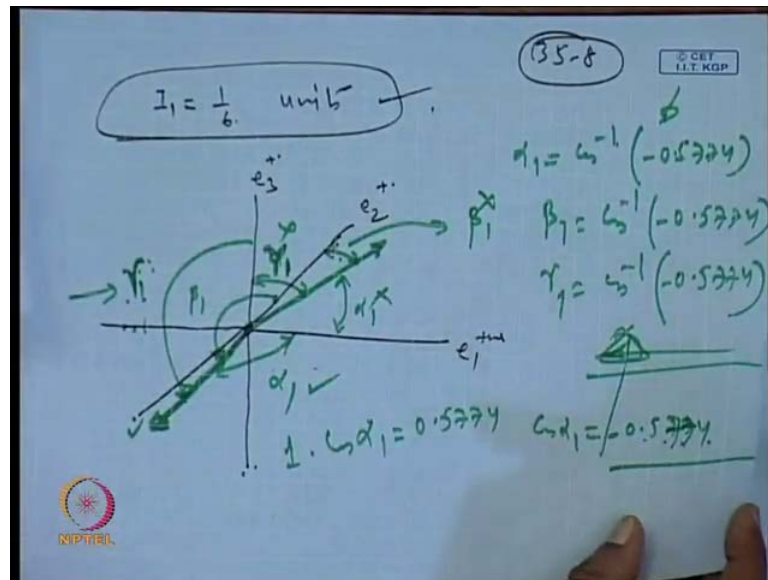 35-8
© CET
I.I.T. KGP
I₁ = 1/6 units
e₃⁺
e₂⁺
α₁ = cos⁻¹ (-0.5774)
β₁ = cos⁻¹ (-0.5774)
γ₁ = cos⁻¹ (-0.5774)
γ₁ˣ
β₁ˣ
→ γ₁
β₁
α₁ˣ
e₁⁺ᵛᵉ
α₁ ✓
1. cos α₁ = 0.5774
cos α₁ = -0.5774
NPTEL